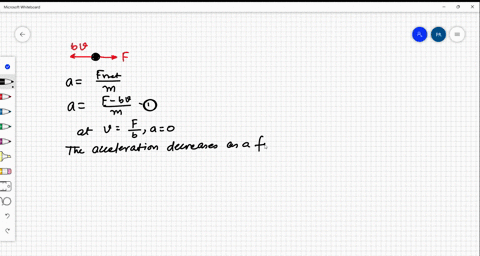 Microsoft Whiteboard
PA
bv F
a = Fnet/m
a = F-bv/m -①
at v = F/b, a=0
The acceleration decreases as a f